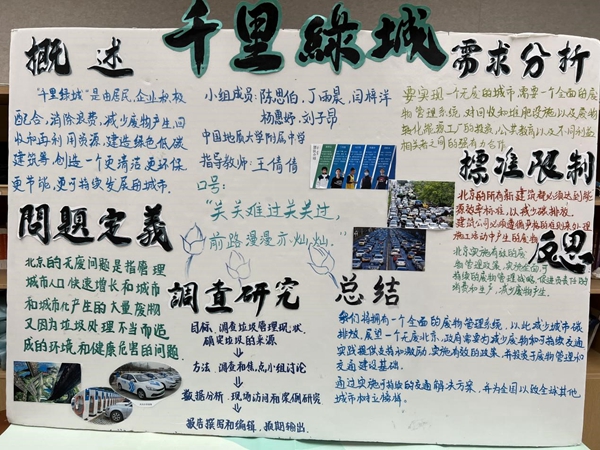 千里綠城
概述
"千里绿城"是由居民、企业和政权
配合,消除浪费,减少废物产生,回
收和再利用资源,建造绿色低碳
建筑等,创造一个更清洁、更环保、
更节能,更可持续发展的城市.
小组成员:陈思伯、丁雨晨、闫梓洋
杨惠婷、刘子昂
中国地质大学附属中学
指导教师:王倩倩
口号:
"关关难过关关过,
前路漫漫亦灿灿."
需求分析
要实现一个无废的城市,需要一个全面的废
物管理系统,对回收和堆肥设施以及废物
转化能源工厂的投资,公共教育以及不同利益
相关者之间的强有力合作.
標准限制
北京的所有新建筑都必须达到能
源效率标准,以减少碳排放.
建筑公司必须遵循严格的准则来处理
施工活动中产生的废物
反思
北京实施有效的废
物管理政策,实施全面可
持续的废物管理战略,促进负责任的
消费和生产,减少废物产生.
問題定義
北京的无废问题是指管理
城市人口快速增长和城市
和城市化产生的大量废物
又因为垃圾处理不当而造
成的环境和健康危害的问题
調查研究
目标:调查垃圾管理现状,
确定垃圾的来源
方法:调查和焦点小组讨论
数据分析:现场访问和案例研究
报告撰写和编辑:预期输出.
总结
我们将拥有一个全面的废物管理系统,以此减少城市碳
排放,展望一个无废北京,政府需要为减少废物和可持续交通
实践提供支持和激励,实施有效的政策,并投资于废物管理和
交通建设基础.
通过实施可持续的交通解决方案,并为全国以致全球其他
城市树立榜样.